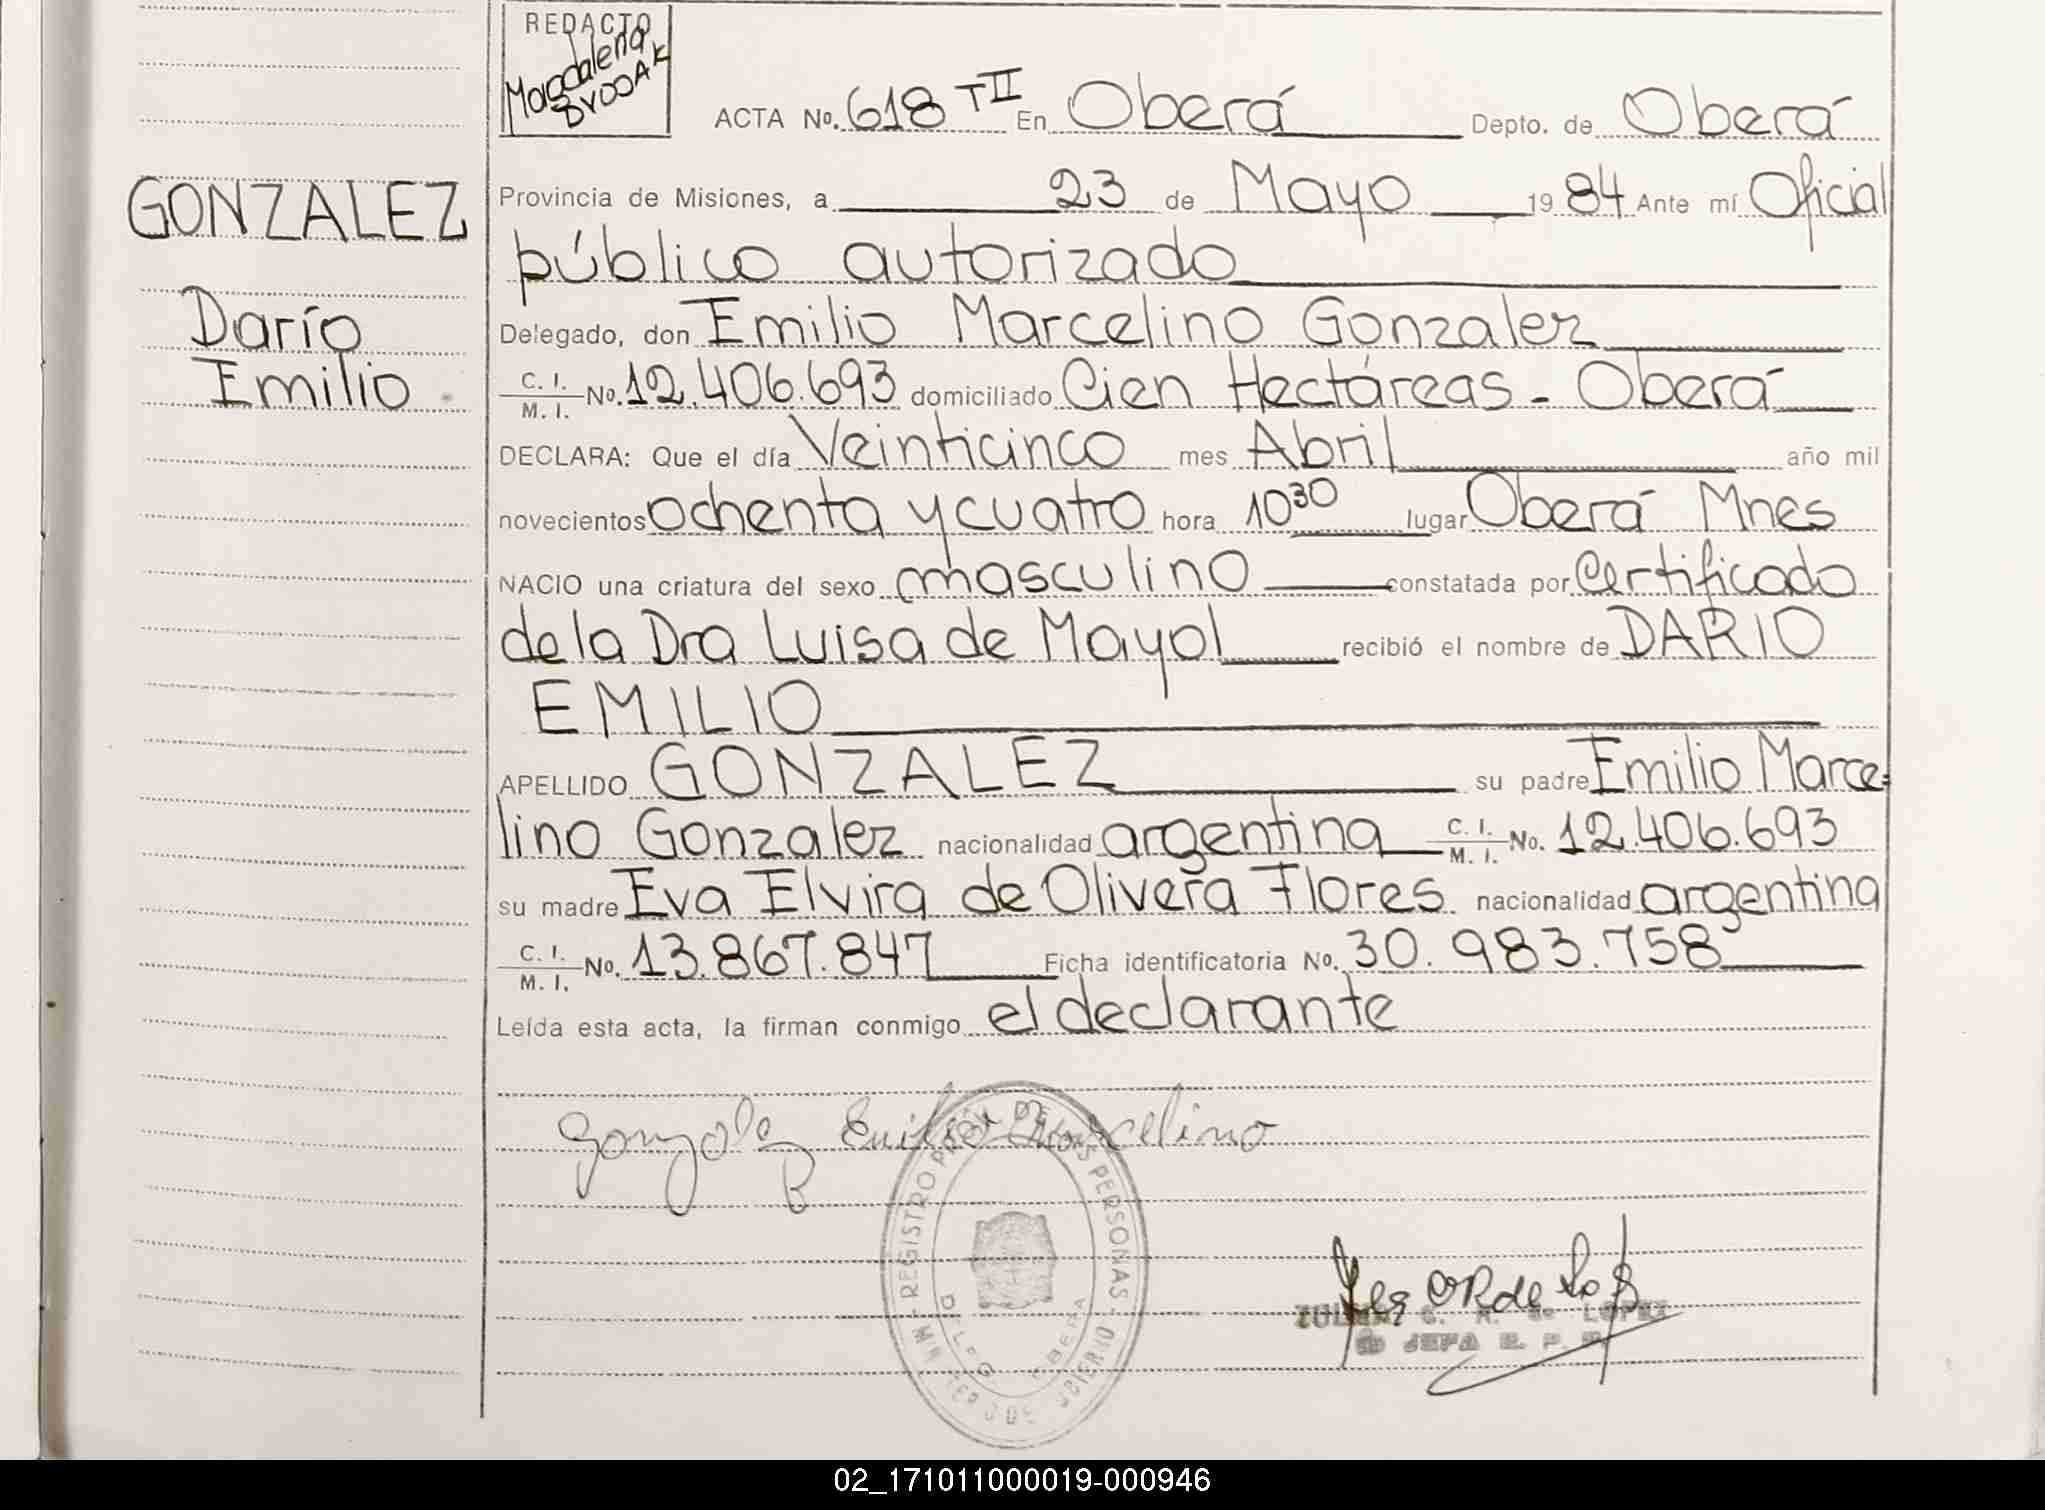 REDACTO
Magdalena
BRODAK
ACTA No. 618 TII En Oberá Depto. de Oberá
GONZALEZ
Provincia de Misiones, a 23 de Mayo 1984 Ante mí Oficial
público autorizado
Darío
Delegado, don Emilio Marcelino Gonzalez
Emilio
C. I. / M. I. No. 12.406.693 domiciliado Cien Hectáreas - Oberá
DECLARA: Que el día Veinticinco mes Abril año mil
novecientos ochenta y cuatro hora 10 30 lugar Oberá Mnes
NACIO una criatura del sexo masculino constatada por Certificado
de la Dra Luisa de Mayol recibió el nombre de DARIO
EMILIO
APELLIDO GONZALEZ su padre Emilio Marce=
lino Gonzalez nacionalidad argentina C. I. / M. I. No. 12.406.693
su madre Eva Elvira de Olivera Flores nacionalidad argentina
C. I. / M. I. No. 13.867.847 Ficha identificatoria No. 30.983.758
Leída esta acta, la firman conmigo el declarante
Gonzalez Emilio Marcelino
REGISTRO PERSONAS
OBERA
de LOPEZ
JEFA
02_171011000019-000946